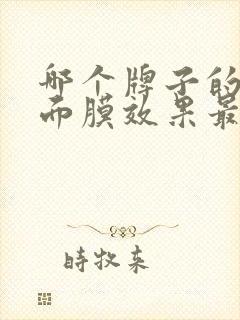 哪个牌子的
面膜效果最
時牧来